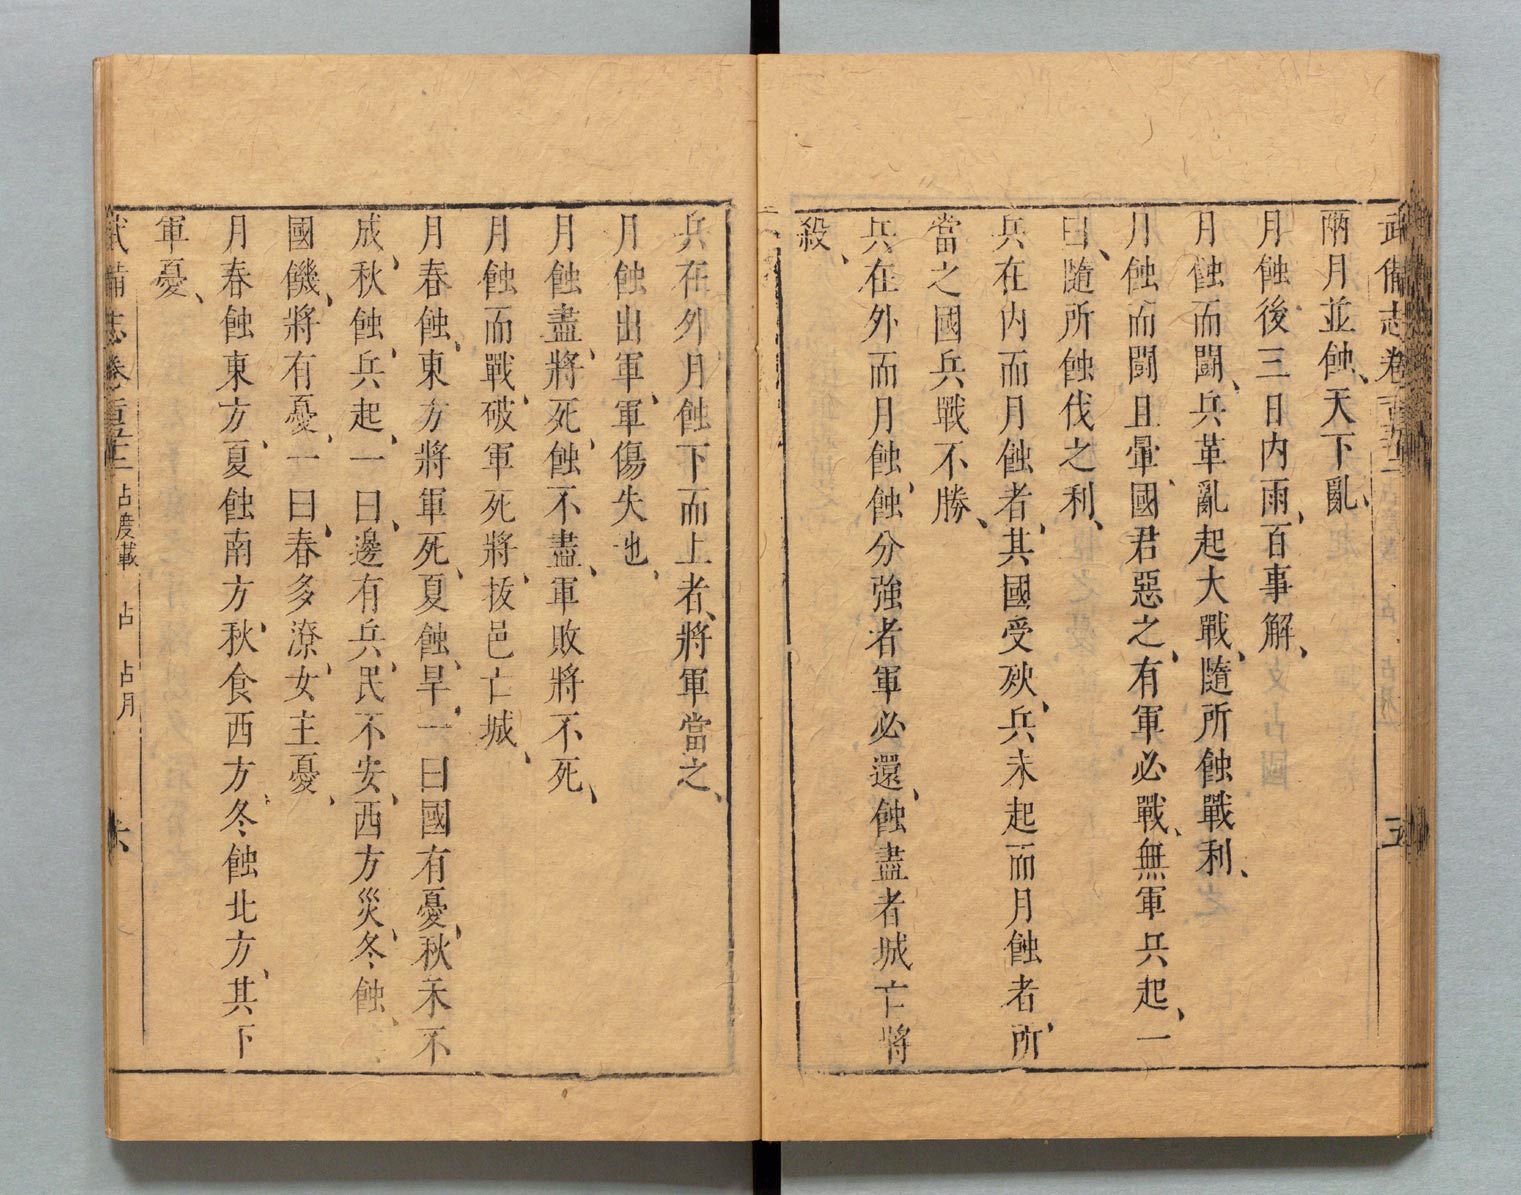 武備志卷
五
兩月並蝕、天下亂、
月蝕後三日内雨、百事解、
月蝕而鬪、兵革亂起大戰、隨所蝕戰利、
月蝕而鬪且暈、國君惡之、有軍必戰、無軍兵起、一
曰、隨所蝕伐之利、
兵在内而月蝕者、其國受殃、兵未起而月蝕者、所
當之國兵戰不勝、
兵在外而月蝕、蝕分強者軍必還、蝕盡者城亡將
殺、
兵在外月蝕下而上者、將軍當之、
月蝕出軍、軍傷失也、
月蝕盡、將死、蝕不盡、軍敗將不死、
月蝕而戰、破軍死將、拔邑亡城、
月春蝕、東方將軍死、夏蝕、旱、一曰國有憂、秋禾不
成、秋蝕、兵起、一曰、邊有兵、民不安、西方災、冬、蝕、
國饑、將有憂、一曰、春多潦、女主憂、
月春蝕東方、夏蝕南方、秋食西方、冬、蝕北方、其下
軍憂、
武備志卷 占度載 占 占月
六